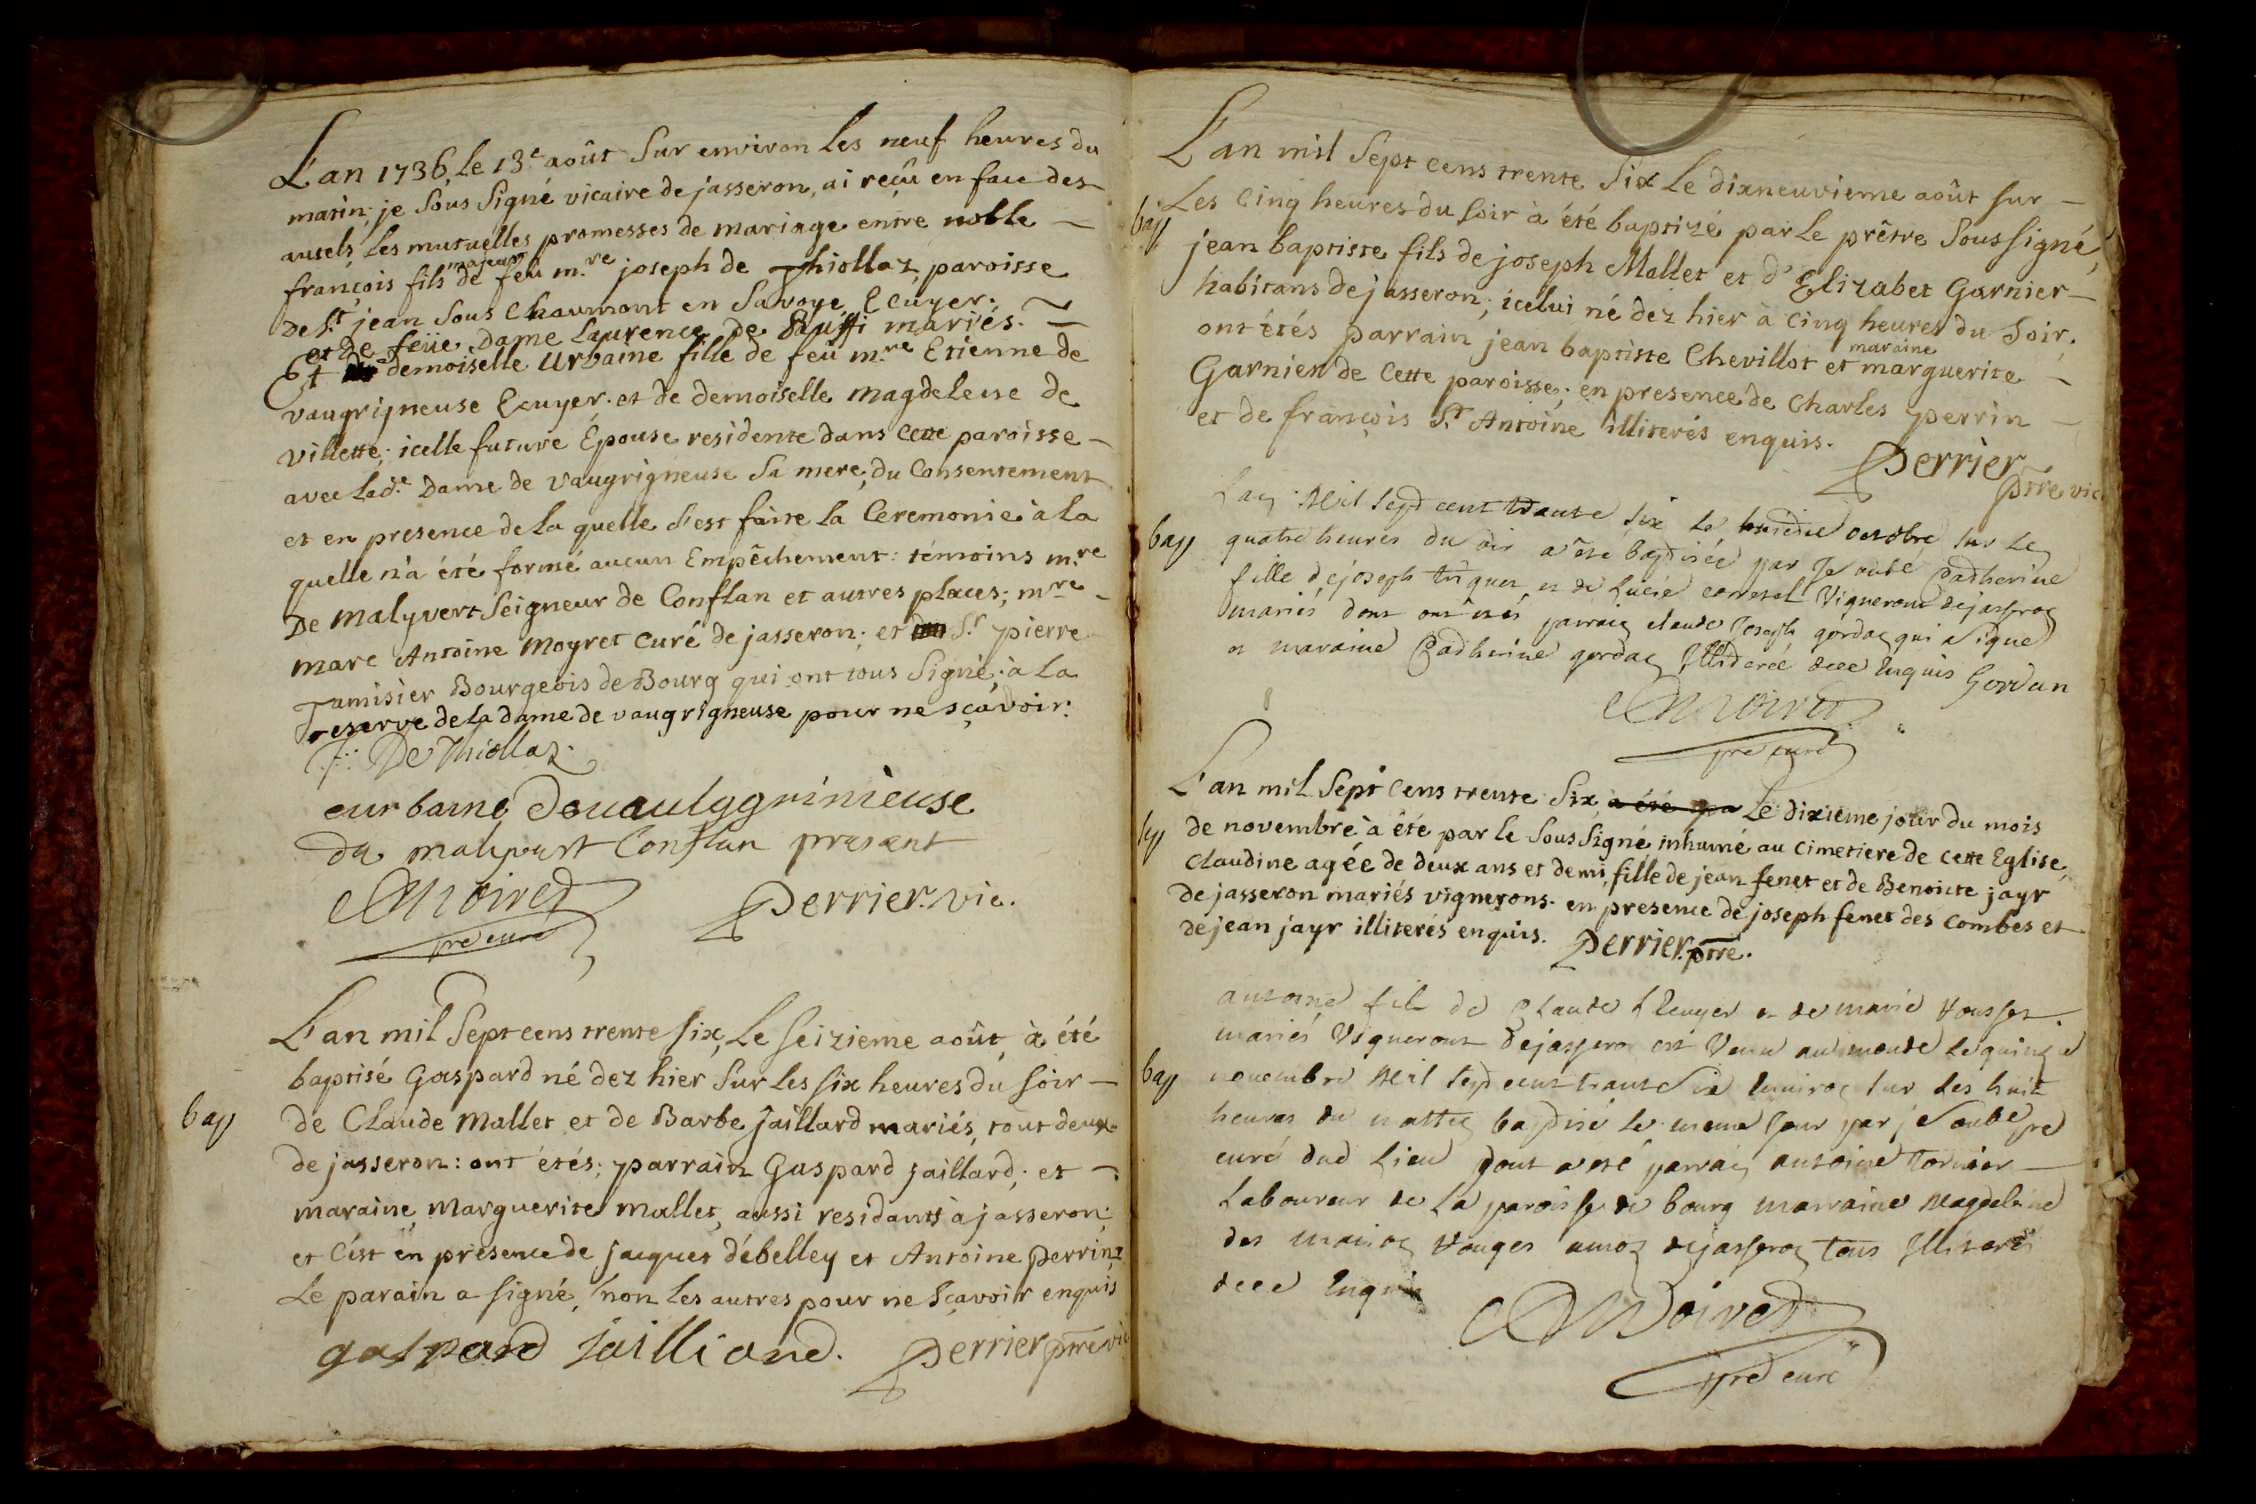 L'an 1736, le 13.e août sur environ les neuf heures du
matin; je sous signé vicaire de jasseron, ai reçû en face des
autels les mutuelles promesses de mariage entre noble —
majeur
françois fils de feu m.re joseph de Thiollaz, paroisse
De S.t jean sous Chaumont en Savoye Ecuyer:
et de feüe Dame Laurence de mariés.
Et demoiselle urbaine fille de feû m.re Etienne de
vaugrigneuse Ecuyer. et de demoiselle magdeleine de
villette; icelle future Épouse residente dans cette paroisse —
avec lad.e Dame de vaugrigneuse sa mere, du Consentement
et en presence de la quelle s'est faite la Ceremonie à la
quelle n'a été formé aucun Empêchement: témoins m.re
De malyvert Seigneur de Conflan et autres places; m.re —
marc Antoine moyret curé de jasseron; et S.r pierre
Tamisier Bourgeois de Bourg qui ont tous signé; à la
reserve de la dame de vaugrigneuse pour ne sçavoir:
F: De Thiollaz.
eurbaine devaulggrinieuse
de malivert Conflan present
Moiret
Perrier. vic.
pre curé
L'an mil sept cens trente six, le seizieme août, à été
baptisé Gaspard né dez hier sur les six heures du soir —
bap
de Claude Mallet et de Barbe Jaillard mariés, tout deux
de jasseron: ont étés; parrain Gaspard jaillard; et
maraine, marguerite mallet, aussi residants à jasseron;
et c'est en presence de jacques débelley et Antoine perrin,
Le parain a signé, non les autres pour ne sçavoir enquis
gaspard jailliard.
Perrier ptre vic
L'an mil sept cens trente six le dixneuvieme août sur —
bap
Les cinq heures du soir à été baptizé par le prêtre soussigné,
jean baptiste fils de joseph Mallet et d'Elizabet Garnier —
habitans de jasseron; icelui né dez hier à cinq heures du soir;
ont étés parrain jean baptiste Chevillot et marguerite
maraine
Garnier de cette paroisse; en presence de Charles perrin —
et de françois S.t Antoine illiterés enquis.
Perrier
ptre vic
Lan Mil sept cent trante six le octobre sur le
bap
quatre heures du oir a été baptisée par Je Catherine
fille de joseph et de Lucie Vigneront dejasseron
mariés dont ont étés parrain claude Joseph gordan qui a signe
et maraine Catherine gordan Illiterée enquis Gordan
Moiret
pre curé
L'an mil Sept cens trente six a été pa le dixieme jour du mois
sep
de novembre à été par le sous signé inhumé au cimetiere de cette Eglise,
claudine agée de deux ans et demi, fille de jean fenet et de Benoite jayr
de jasseron mariés vignerons. en presence de joseph fenet des combes et
de jean jayr illiterés enquis.
Perrier. ptre.
antoine fils de Claude et de marie
mariés Vigneront dejasseron est Venu au monde le quinze
bap
novembre Mil sept cent trante Six Environ sur les huit
heures du mattin baptisé le meme Jour par je pre
curé dud Lieu dont a esté parrain antoine tornier —
Laboureur de la paroisse de bourg marraine Magdelaine
des dejasseron tous Illiterés
Enquis
Moiret
pre curé